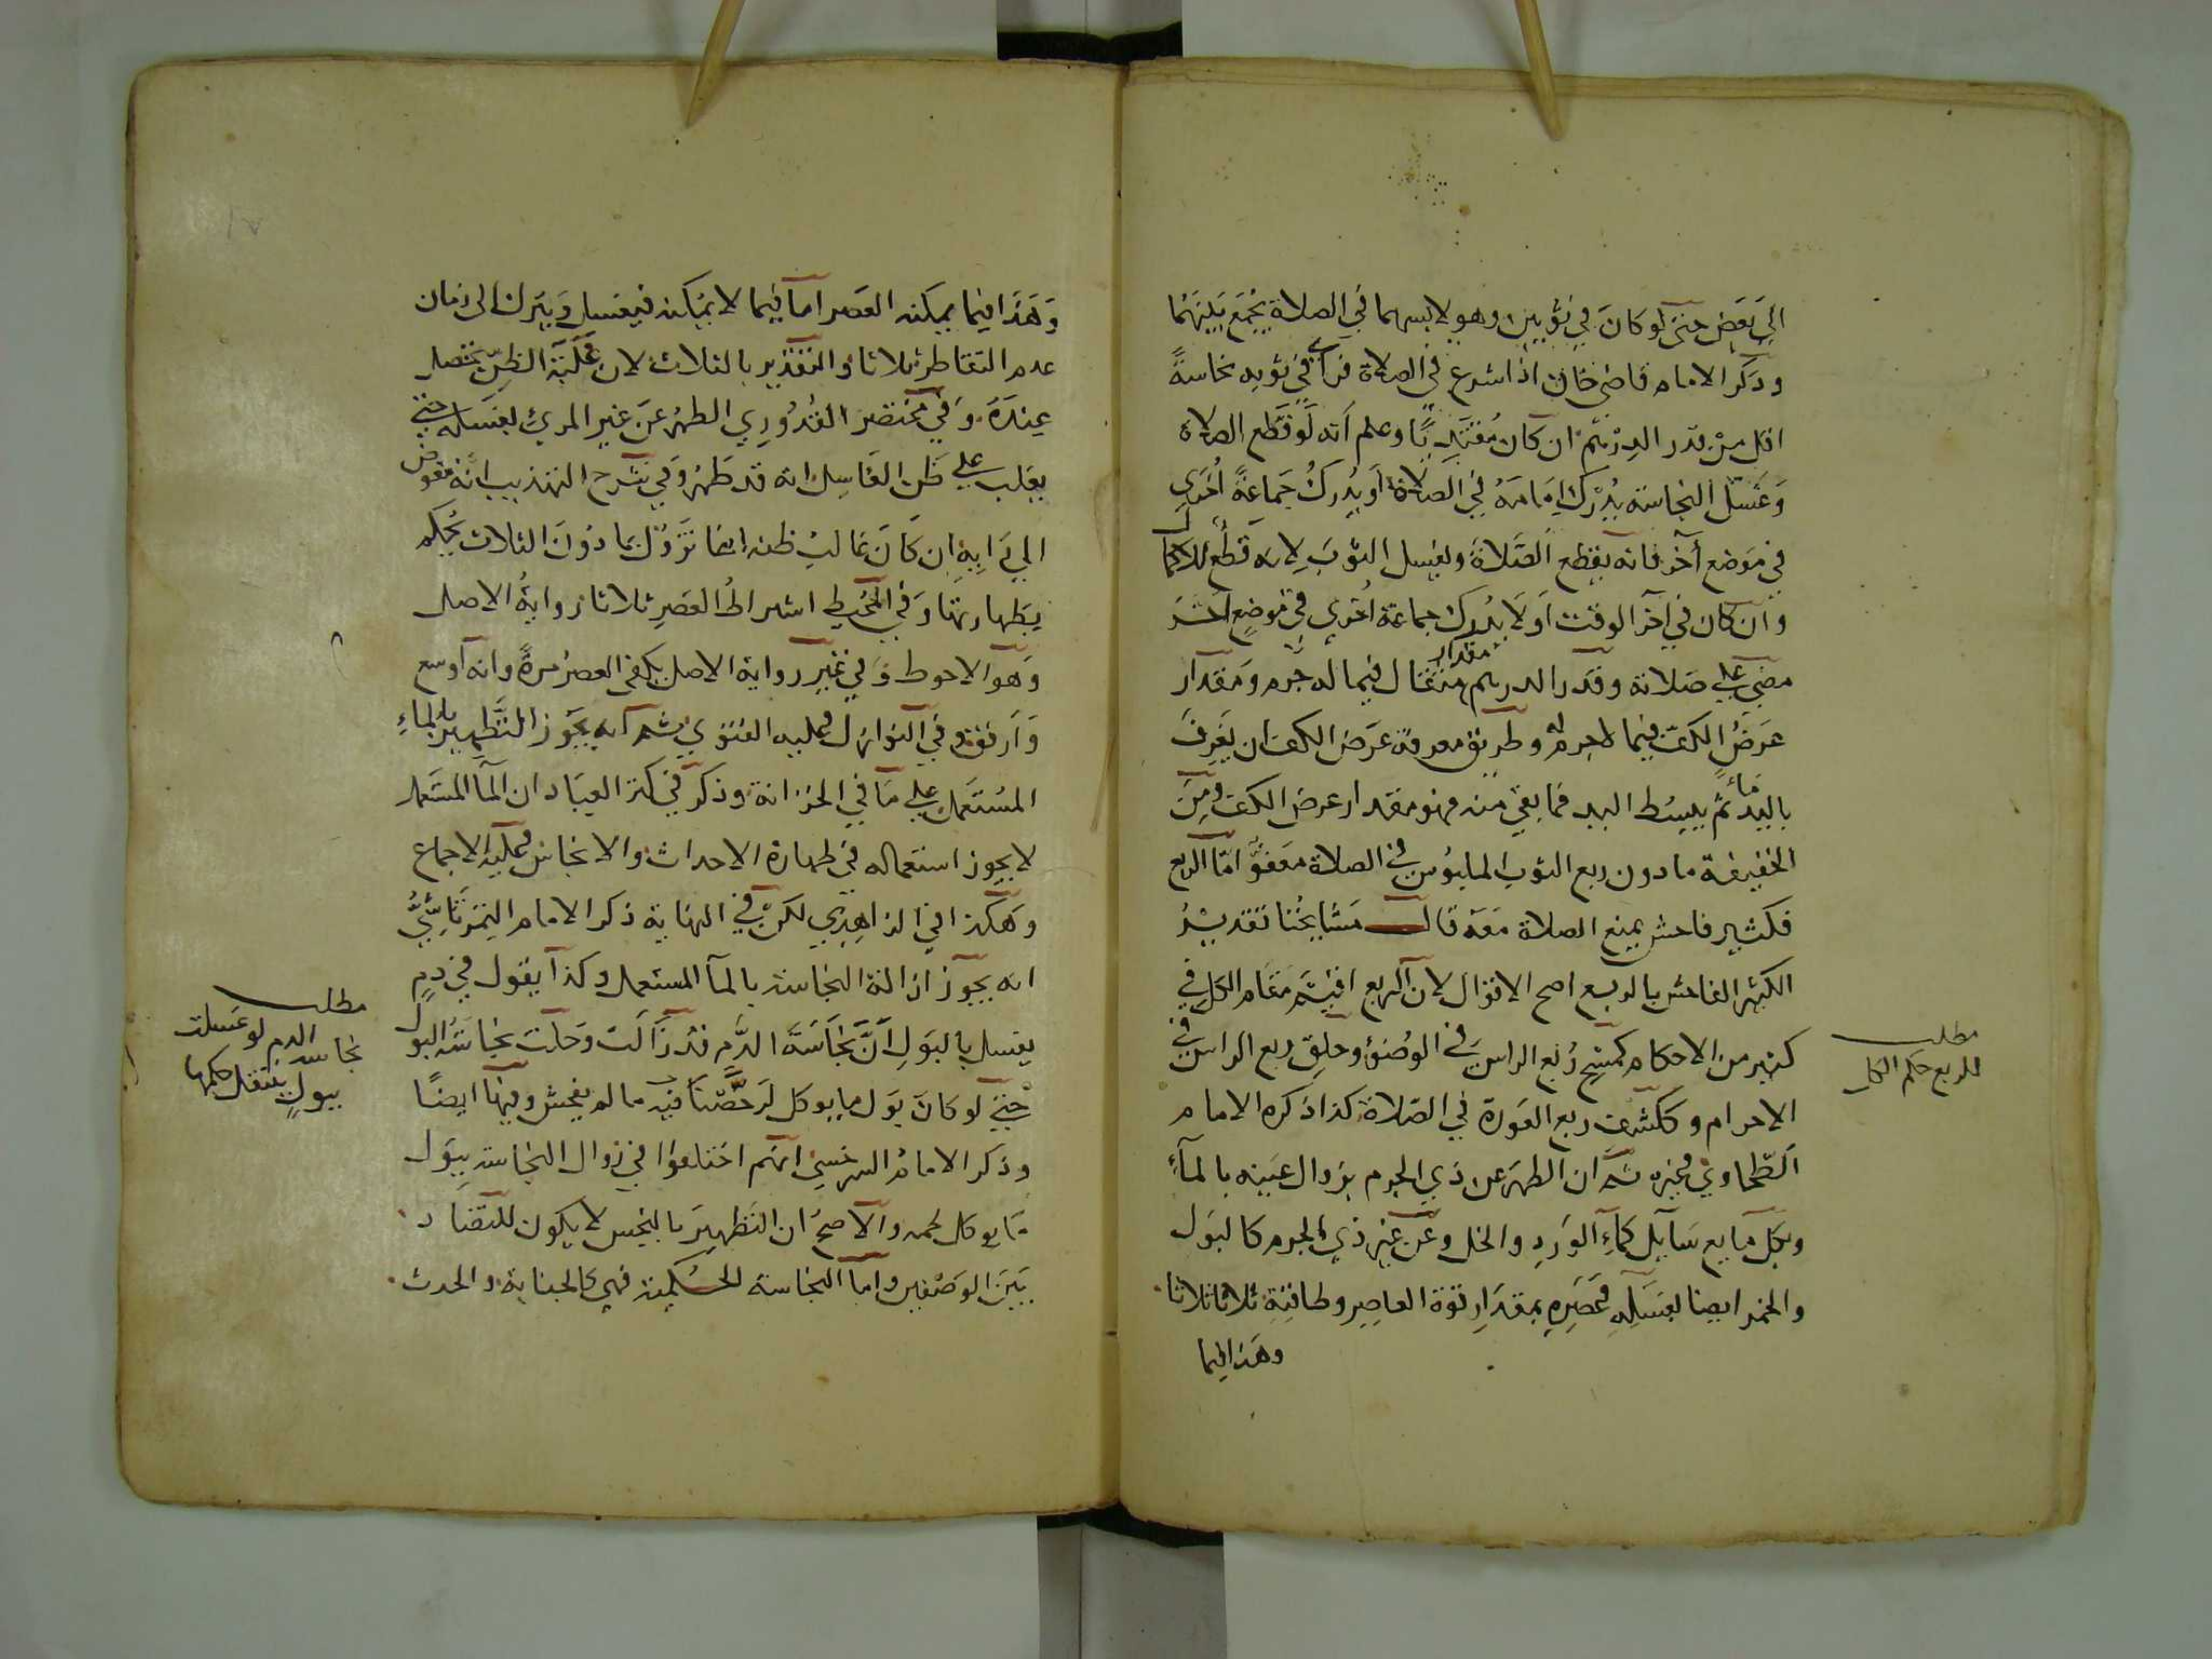 الى بعض حتى لو كان في ثوبين وهو لابسهما في الصلاة يجمع بينهما
وذكر الامام قاضى خان اذا شرع في الصلاة فرأى في ثوبه نجاسةً
اقل من قدر الدرهم ان كان مقتديًا وعلم أنه لو قطع الصلاة
وغسل النجاسة يدرك امامه في الصلاة او يدرك جماعةً أخرى
في موضع آخر فانه يقطع الصلاة ويغسل الثوب لانه قطع للاكمال
وان كان في آخر الوقت او لا يدرك جماعة اخرى في موضع آخر
مضى على صلاته وقدر الدرهم مقدار مثقال فيما له جرم ومقدار
عرض الكف فيما لا جرم له وطريق معرفة عرض الكف ان يغرف
باليد ماءً ثم يبسط اليد فما بقي منه فهو مقدار عرض الكف ومن
الخفيفة ما دون ربع الثوب الملبوس في الصلاة معفوٌّ اما الربع
فكثير فاحش يمنع الصلاة معه قال مشايخنا تقدير
الكثير الفاحش بالربع اصح الاقوال لان الربع اقيم مقام الكل في
كثير من الاحكام كمسح ربع الراس في الوضوء وحلق ربع الراس في
الاحرام وككشف ربع العورة في الصلاة كذا ذكره الامام
الطحاوي وغيره ثم ان الطهر عن ذي الجرم بزوال عينه بالمآء
وبكل مايع سايل كمآء الورد والخل وعن غير ذي الجرم كالبول
والخمر ايضا بغسله وعصره بمقدار قوة العاصر وطاقته ثلاثا ثلاثا
وهذا فيما
مطلب
للربع حكم الكل
وهذا فيما يمكنه العصر اما فيما لا يمكنه فيغسل ويترك الى زمان
عدم التقاطر ثلاثا والتقدير بالثلاث لان غلبة الظن تحصل
عنده وفي مختصر القدوري الطهر عن غير المرئ بغسله حتى
يغلب على ظن الغاسل انه قد طهر وفي شرح التهذيب انه مفوض
الى رايه ان كان غالب ظنه انها تزول بما دون الثلاث يحكم
بطهارتها وفي المحيط اشتراط العصر ثلاثا رواية الاصل
وهو الاحوط وفي غير رواية الاصل يكفى العصر مرةً وانه اوسع
وارفق وفي النوازل وعليه الفتوى ثم انه يجوز التطهير بالماء
المستعمل على ما في الخزانة وذكر في كنز العباد ان المآ المستعمل
لا يجوز استعماله في طهارة الاحداث والانجاس وعليه الاجماع
وهكذا في الزاهدي لكن في النهاية ذكر الامام التمرتاشيُّ
انه يجوز ازالة النجاسة بالمآ المستعمل وكذا يقول في دمٍ
يغسل بالبول أنَّ نجاسة الدم قد زالت وحلت نجاسة البول
حتى لو كان بول ما يوكل لرخصنا فيه ما لم يفحش وفيها ايضًا
وذكر الامام السرخسى انهم اختلفوا في زوال النجاسة ببول
ما يوكل لحمه والاصح ان التطهير بالنجس لا يكون للتضاد
بين الوصفين واما النجاسة الحكمية فهي كالجنابة والحدث
مطلب
نجاسة الدم لو غسلت
ببولٍ ينتقل حكمها